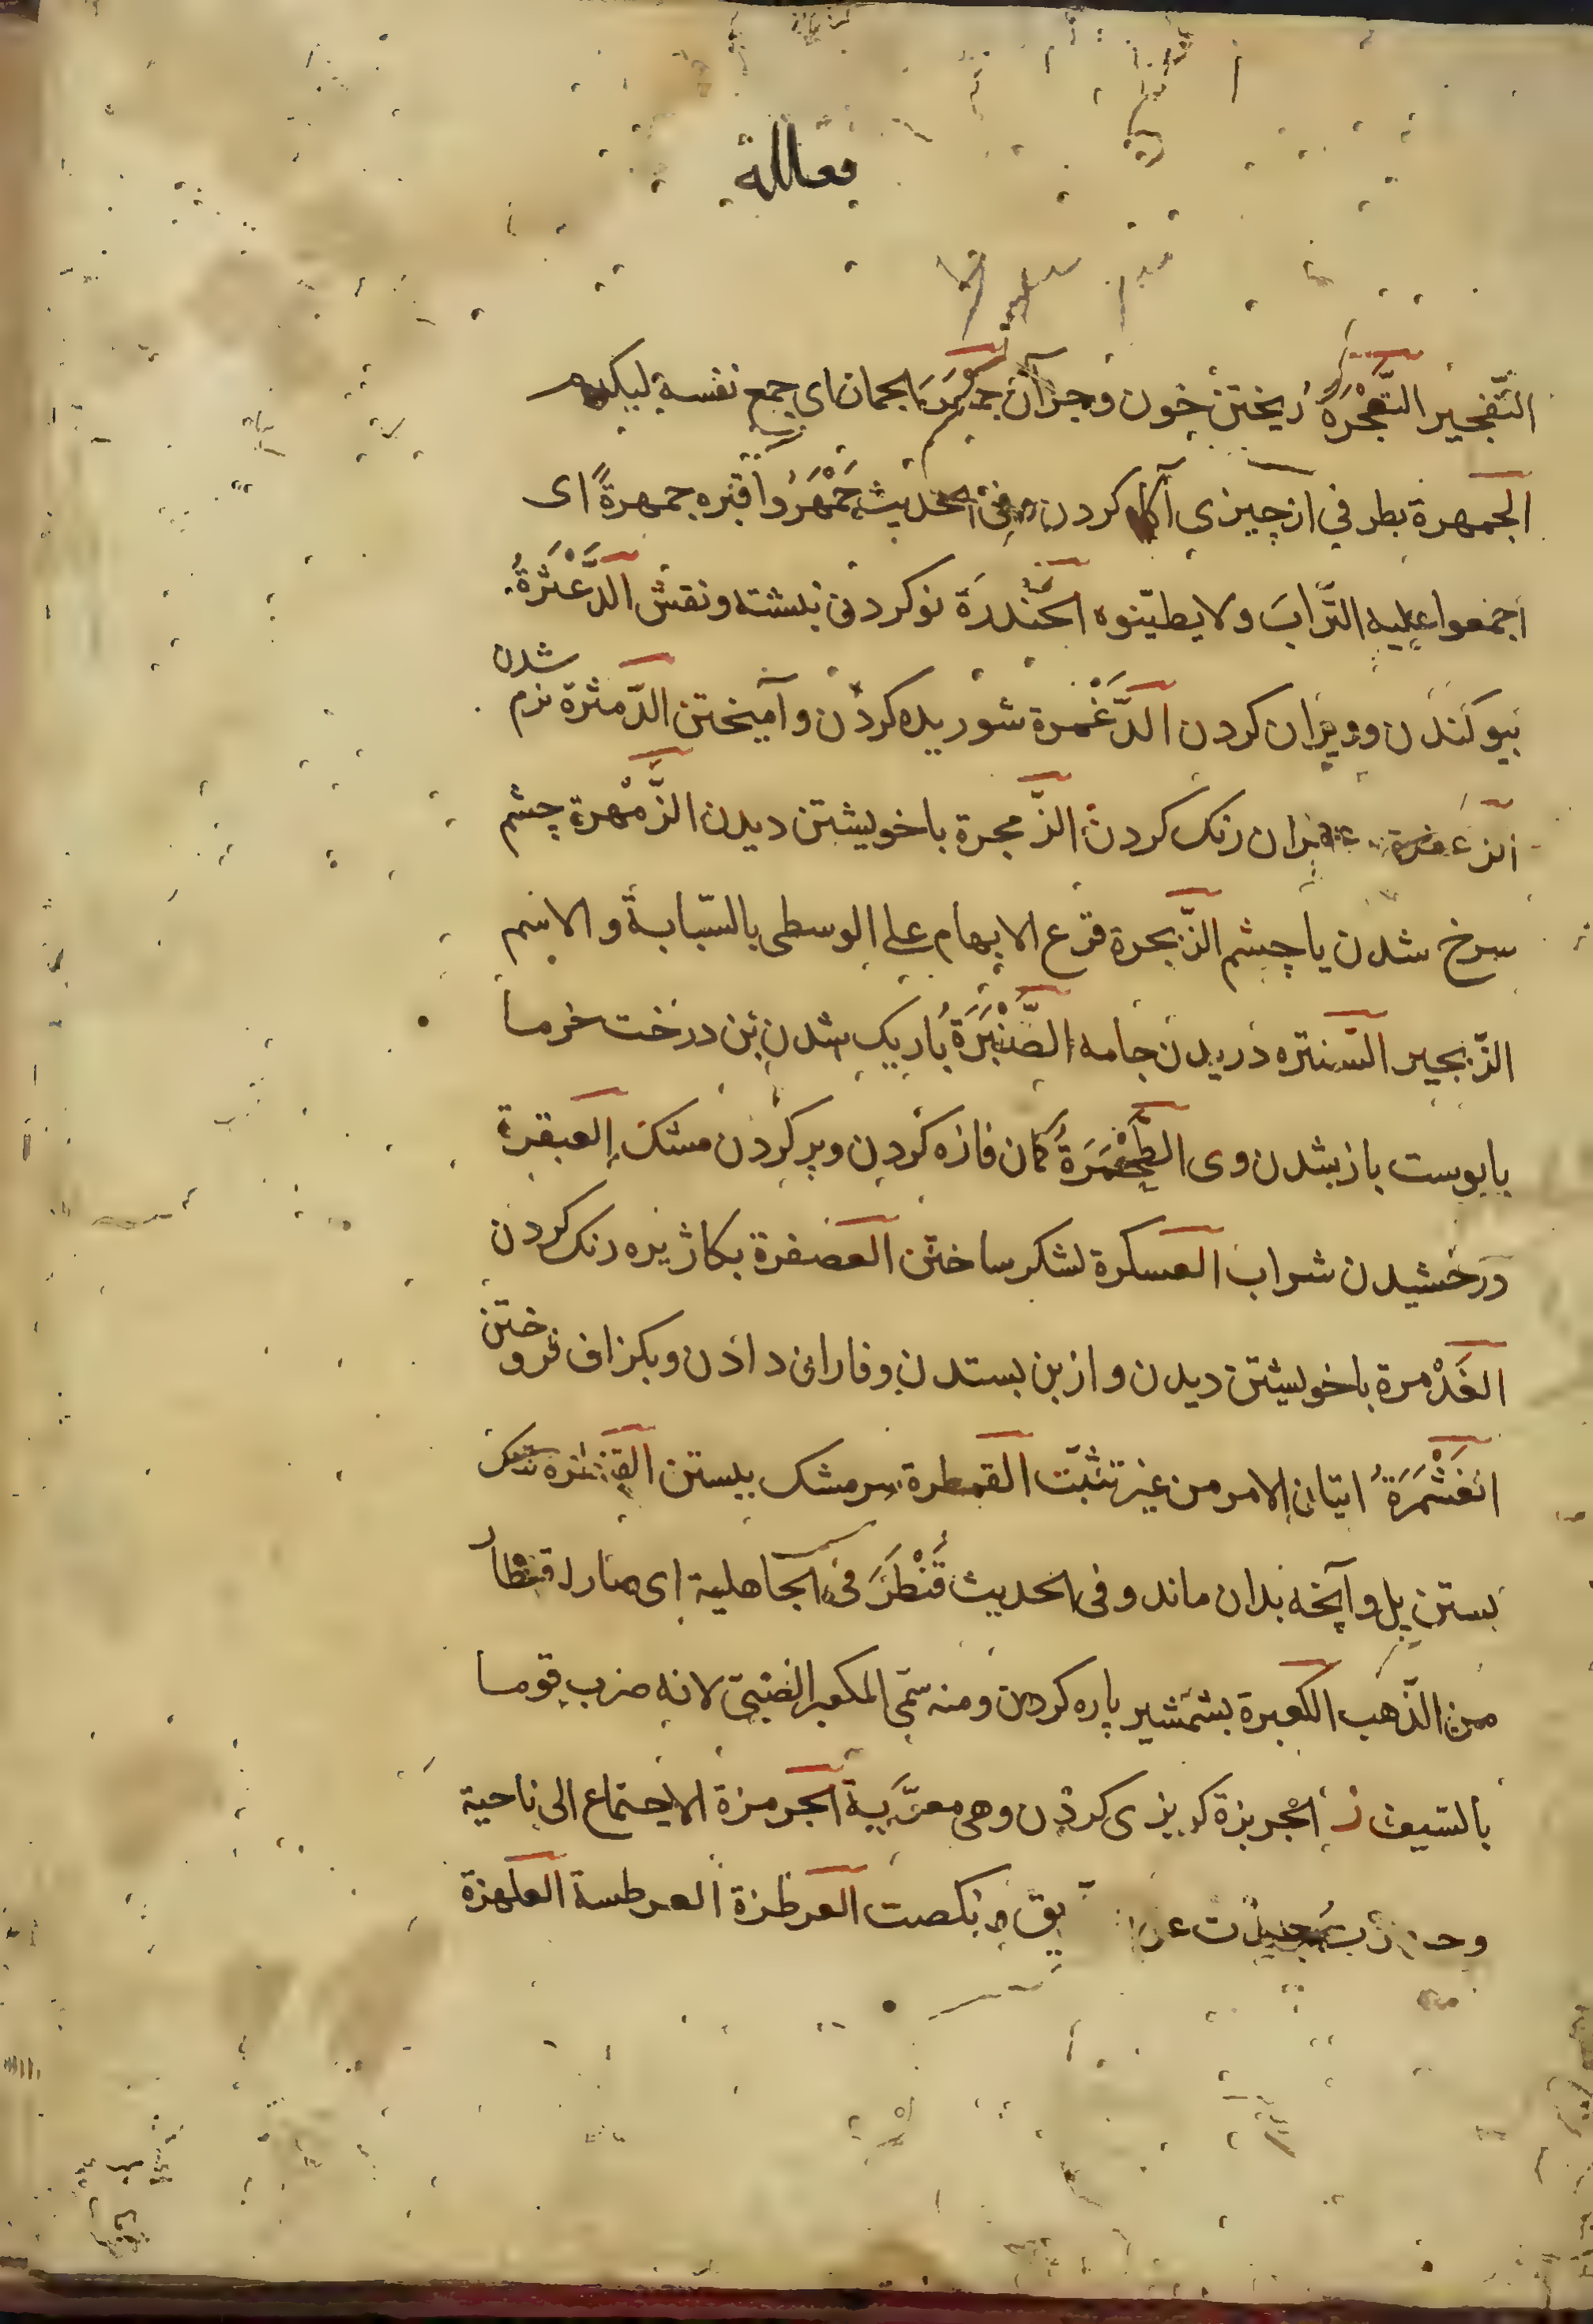 فعاللة
التّفجير الثَّعْجَرَةُ ريختن خون وجز آن جمهر الجمان اى جمع نفسه ليكبر
الجمهرة بطرفي از چيزى آگاه كردن وفى الحديث جَمْهِرُوا قبره جمهرةً اى
اجمعوا عليه التّرابَ ولا يطيّنوه الحَنْدَرَة نو كردن نبشته ونقش الدَّعْثَرَةُ
بيوكندن وويران كردن الدَّغْمرة شوريده كردن وآميختن الدّمثرة نرم شدن
الزعفرة بزعفران رنك كردن الزّمجرة با خويشتن ديدن الزَّمْهرة چشم
سرخ شدن يا چشم الزّنجرة قرع الابهام على الوسطى بالسّبابة والاسم
الزّنجير الشنتره دريدن جامه الصَّنْبَرَةُ باريك شدن بن درخت خرما
با پوست باز شدن وى الطَّحْمَرَةُ كمان فازه كردن وپر كردن مشك العبقرة
درخشيدن شراب العسكرة لشكر ساختن العصفرة بكاژيره رنك كردن
الغَذْمرة با خويشتن ديدن وازبن بستدن وفارانى دادن وبكزاف فروختن
الغَشْمَرَةُ اتيان الامر من غير تثبّت القمطرة سر مشك ببستن القنطره
بستن پل وآنچه بدان ماند وفى الحديث قَنْطَرَ فى الجاهلية اى صار له قنطار
من الذّهب الكعبرة بشمشير پاره كردن ومنه سمّى المكعبر الضّبىّ لانه ضرب قوما
بالسّيف ز الجربزة كربزى كردن وهى معرّبة الجرمزة الاجتماع الى ناحية
يق نكصت العرطزة العرطسة العلهزة